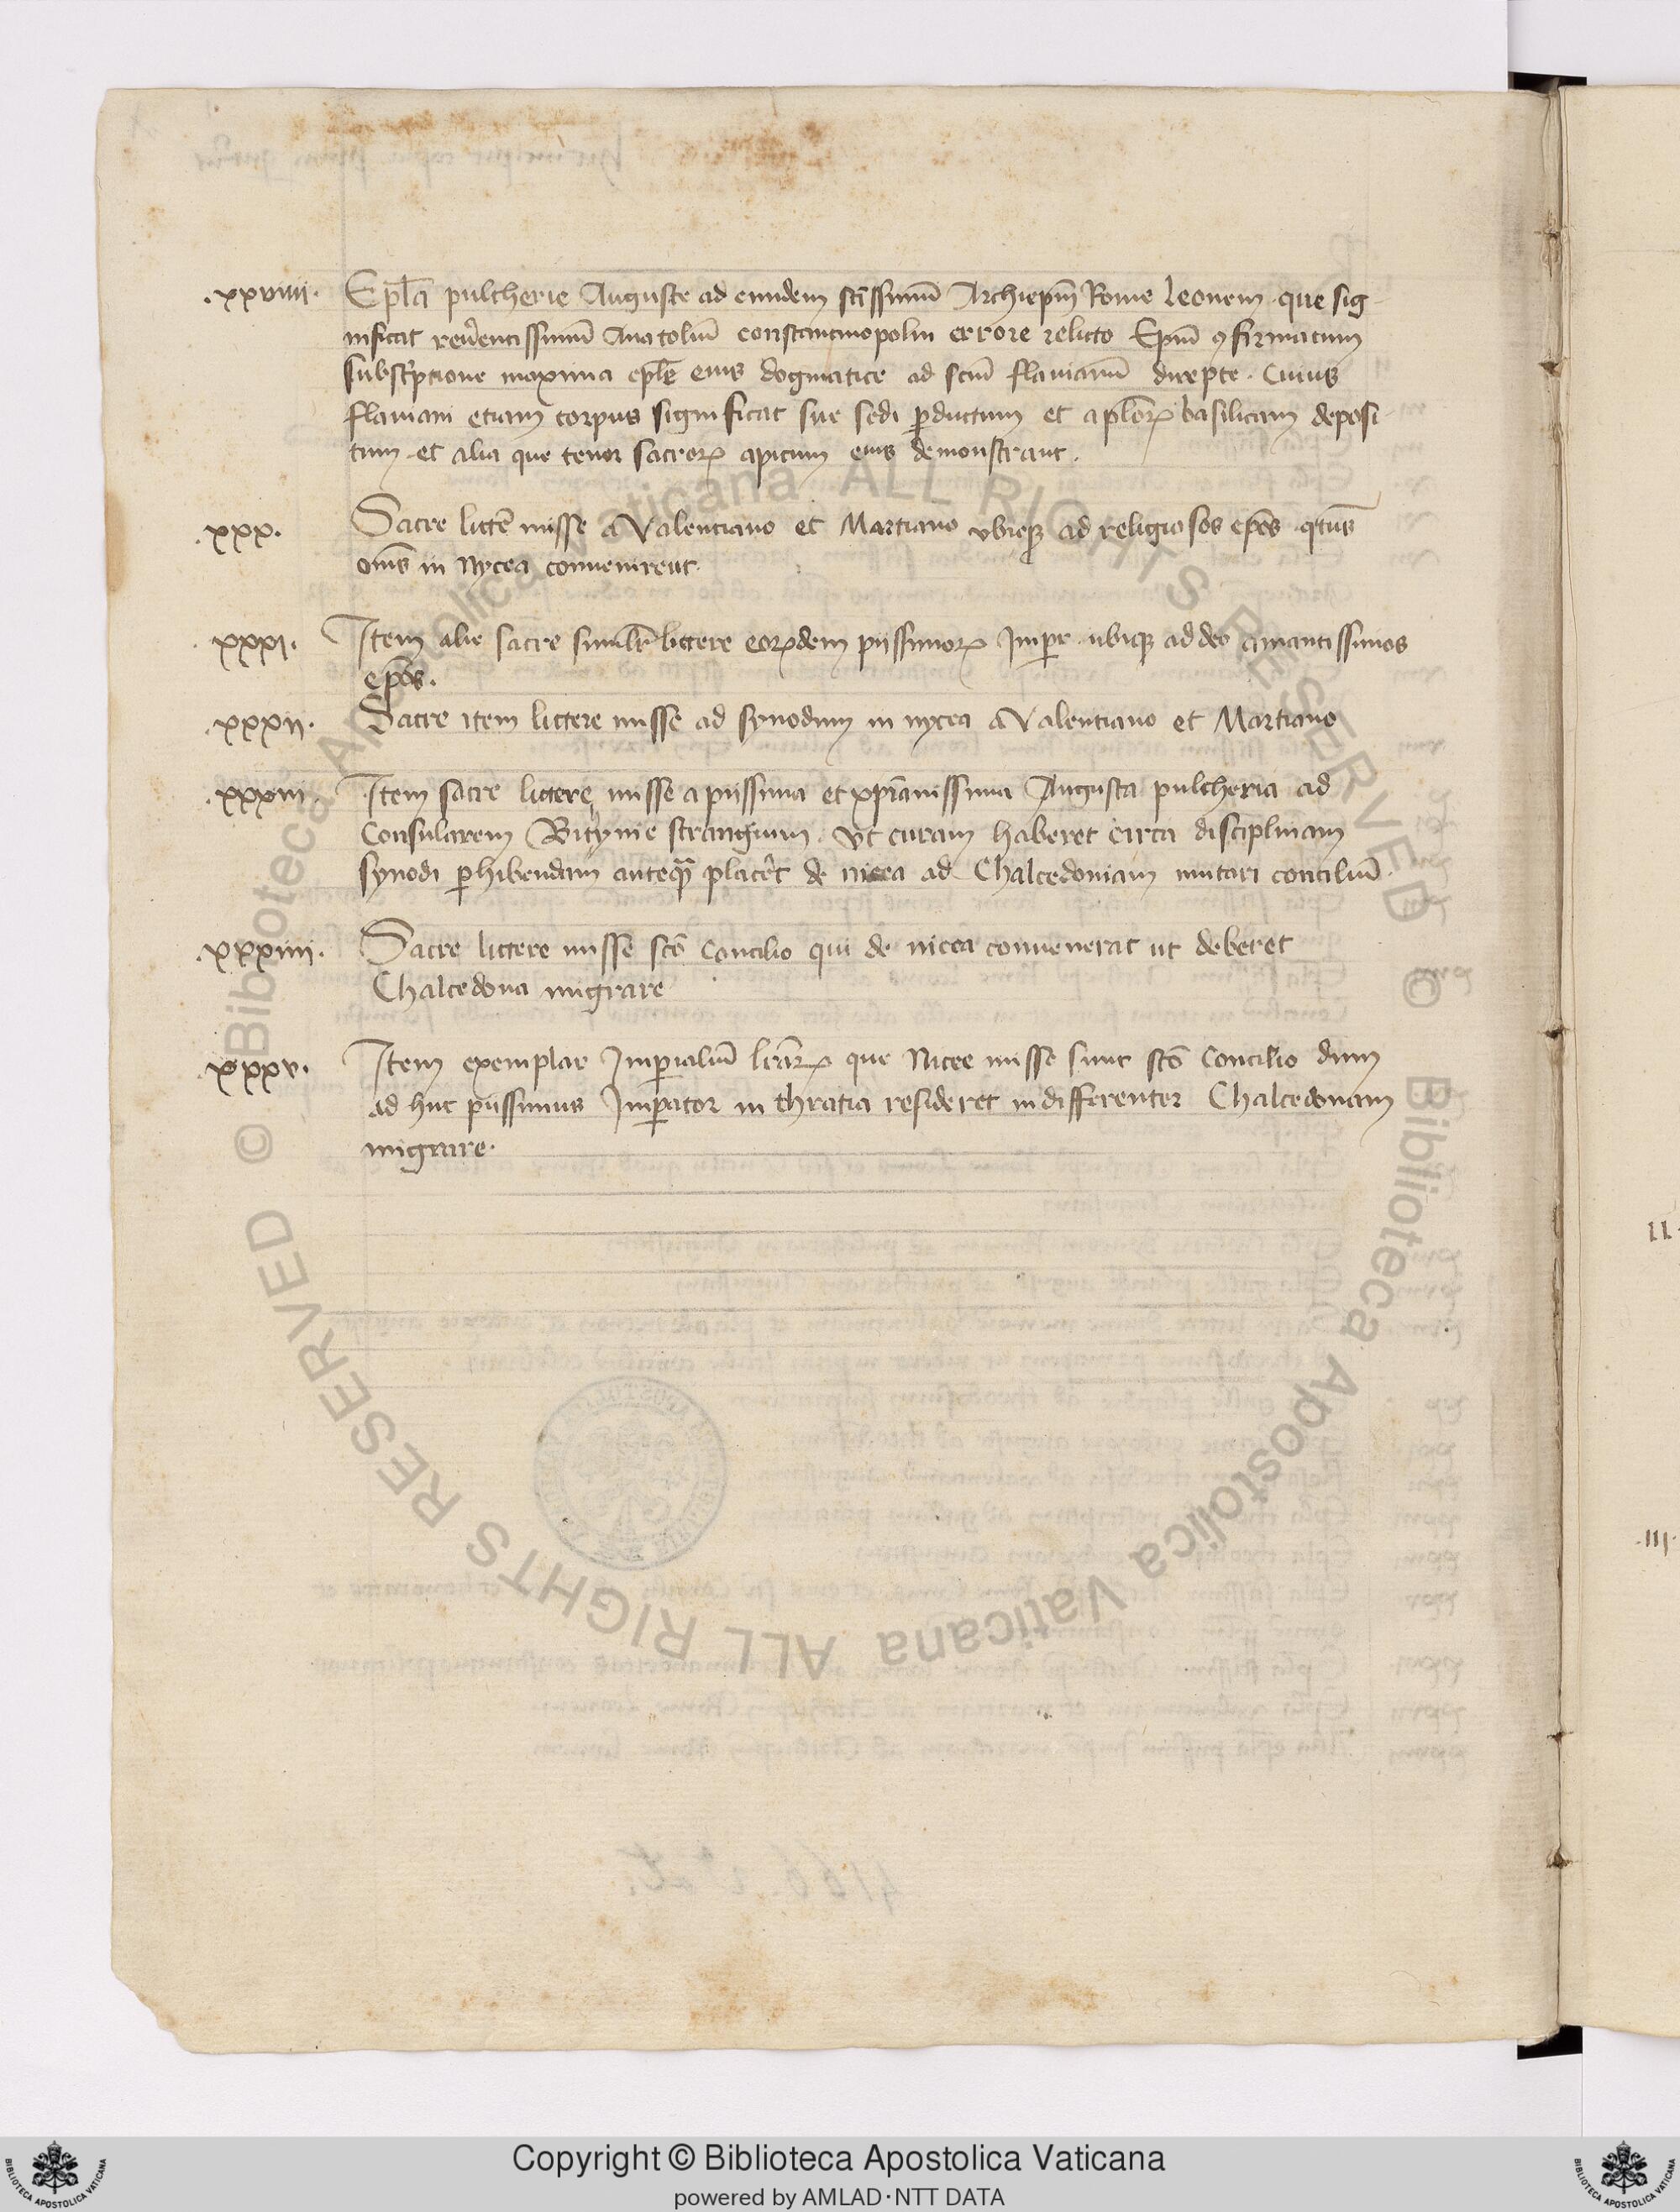 .xxviiii. Epla pulcherie Auguste ad eundem sctissimū Archiepm̄ Rome Leonem que sig
nificat reuerentissimū Anatoliū constantinopolin errore relicto Epm̄ ꝯfirmatum
subscriptione maxima eple eius dogmatice ad scm̄ flauianū directe. Cuius
flauiani etiam corpus significat sue sedi ꝑductum et aplorꝝ basilicam deposi
tum. et alia que tenor sacrorꝝ apicum eius demonstrant.
.xxx. Sacre littē misse a Valentiano et Martiano vbiqꝫ ad religiosos epōs qtus
om̄s in Nycea conuenirent.
.xxxi. Item alie sacre similr̄ littere eorꝝdem piissimorꝝ Imper. ubiqꝫ ad deo amantissimos
epōs.
.xxxii. Sacre item littere misse ad synodum in nycea a Valentiano et Martiano
.xxxiii. Item sacre littere misse a piissima et xpianissima Augusta pulcheria ad
Consularem Bitynie strangium. vt curam haberet circa disciplinam
synodi ꝑhibendam anteqꝫ placer̄t de nicea ad Chalcedoniam mutari conciliū.
.xxxiiii. Sacre littere misse sctō Concilio qui de nicea conuenerat ut deberet
Chalcedona migrare
.xxxv. Item exemplar Imꝑialiū lr̄arꝝ que Nicee misse sunt sctō Concilio dum
ad huc piissimus Imꝑator in thratia resideret indifferenter Chalcedonam
migrare.
II
.III.
© Biblioteca Apostolica Vaticana ALL RIGHTS RESERVED © Biblioteca Apostolica Vaticana ALL RIGHTS RESERVED
Copyright © Biblioteca Apostolica Vaticana
powered by AMLAD·NTT DATA
BIBLIOTECA APOSTOLICA VATICANA
BIBLIOTECA APOSTOLICA VATICANA